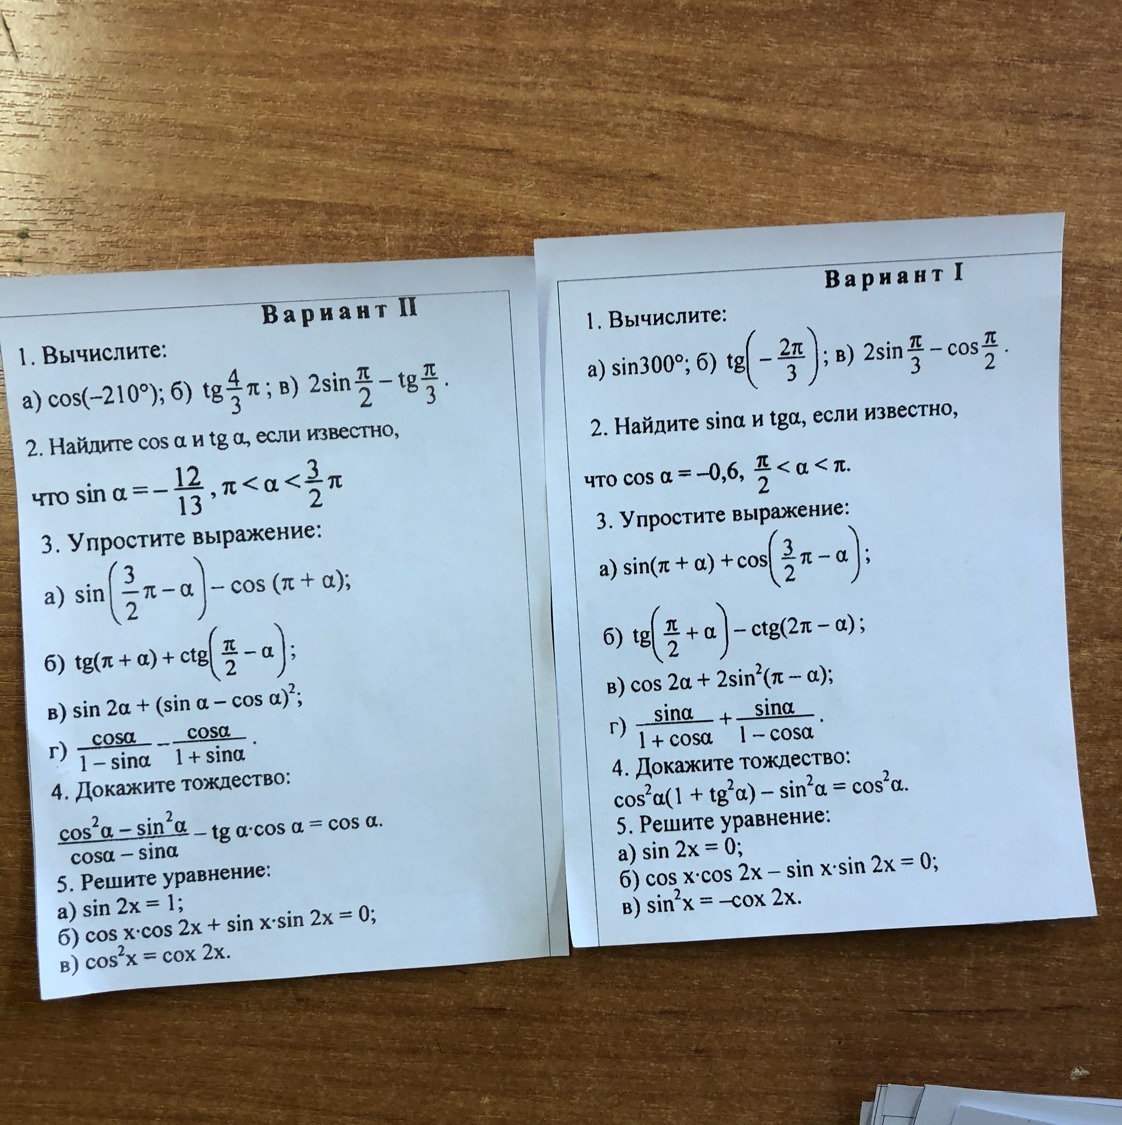 Вариант II
1. Вычислите:
а) cos(–210°); б) tg 4/3 π; в) 2sin π/2 – tg π/3.
2. Найдите cos α и tg α, если известно,
что sin α = – 12/13, π < α < 3/2 π
3. Упростите выражение:
а) sin(3/2 π – α) – cos (π + α);
б) tg(π + α) + ctg(π/2 – α);
в) sin 2α + (sin α – cos α)²;
г) cosα/(1 – sinα) – cosα/(1 + sinα).
4. Докажите тождество:
(cos²α – sin²α)/(cosα – sinα) – tg α·cos α = cos α.
5. Решите уравнение:
а) sin 2x = 1;
б) cos x·cos 2x + sin x·sin 2x = 0;
в) cos²x = cox 2x.
Вариант I
1. Вычислите:
а) sin300°; б) tg(– 2π/3); в) 2sin π/3 – cos π/2.
2. Найдите sinα и tgα, если известно,
что cos α = –0,6, π/2 < α < π.
3. Упростите выражение:
а) sin(π + α) + cos(3/2 π – α);
б) tg(π/2 + α) – ctg(2π – α);
в) cos 2α + 2sin²(π – α);
г) sinα/(1 + cosα) + sinα/(1 – cosα).
4. Докажите тождество:
cos²α(1 + tg²α) – sin²α = cos²α.
5. Решите уравнение:
а) sin 2x = 0;
б) cos x·cos 2x – sin x·sin 2x = 0;
в) sin²x = –cox 2x.